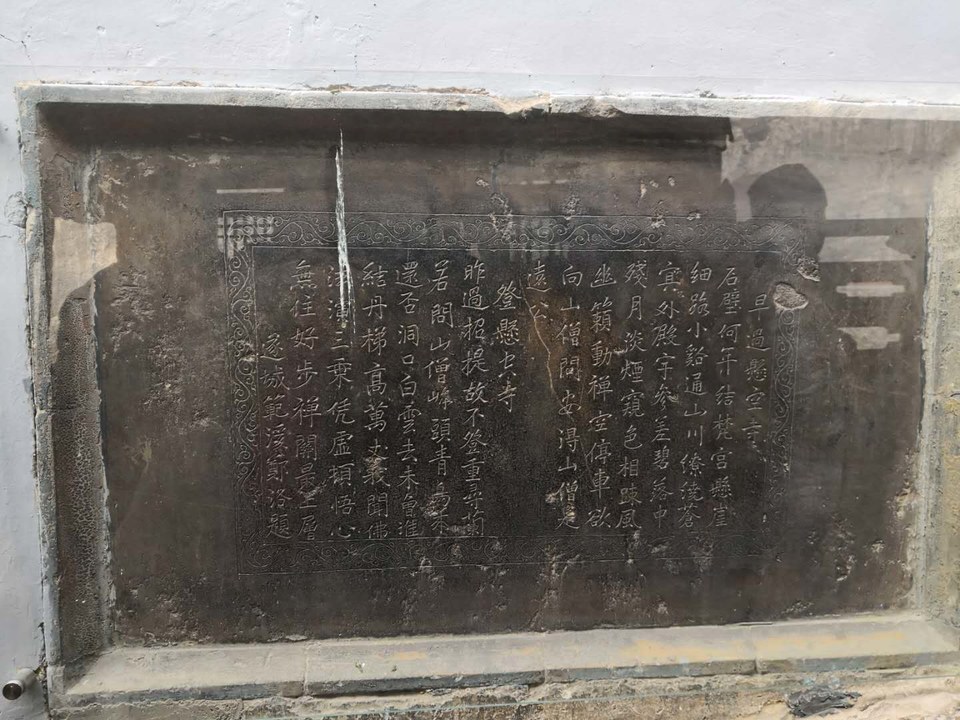 早過懸空寺
石壁何年結梵宮懸崖
細路小谿通山川繚繞蒼
宜外殿宇參差碧落中
殘月淡煙窺色相踈風
幽籟動禪空停車欲
向山僧問安得山僧是
遠公
登懸空寺
昨過招提故不登重尋
若問山僧嶂頭青鳥
還否洞口白雲去未曾進
結丹梯高萬丈我聞佛
三乘凭虛頓悟心
無住好步禪關最上層
遂城範溪鄭洛題